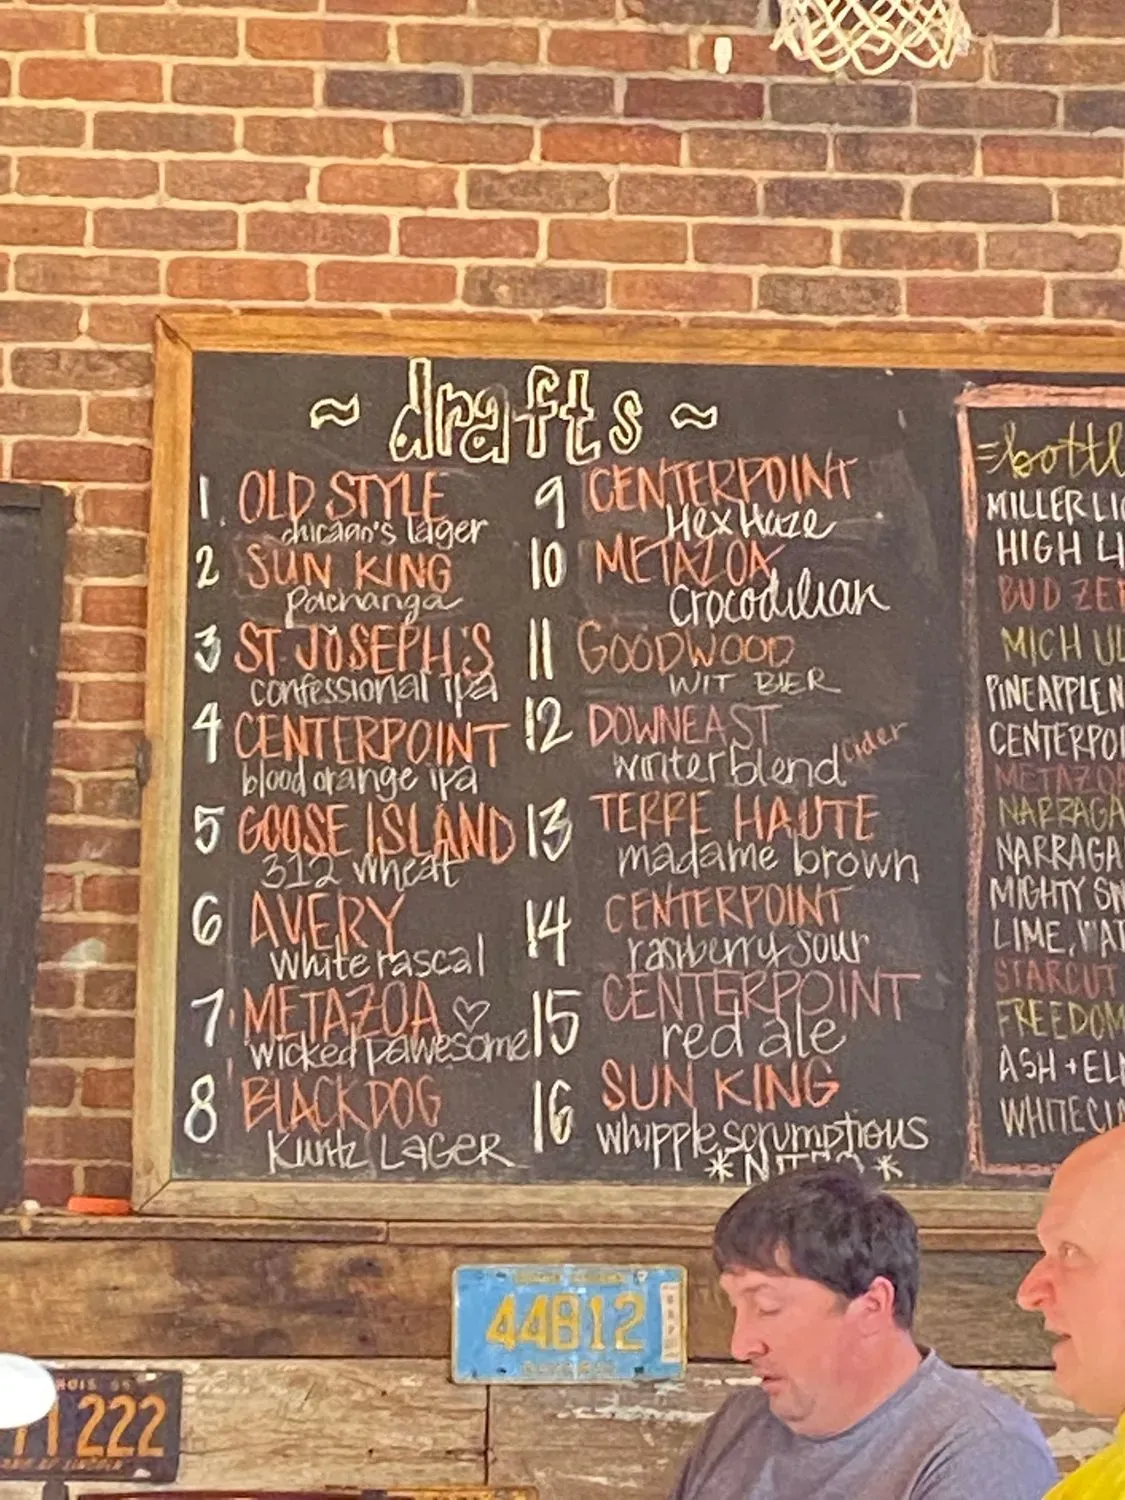 ~ drafts ~
1. OLD STYLE
chicago's lager
2 SUN KING
pachanga
3 ST. JOSEPH'S
confessional ipa
4 CENTERPOINT
blood orange ipa
5 GOOSE ISLAND
312 wheat
6 AVERY
white rascal
7 METAZOA ♡
wicked pawesome
8 BLACKDOG
Kuntz LAGER
9 CENTERPOINT
Hex Haze
10 METAZOA
Crocodilian
11 GOODWOOD
WIT BIER
12 DOWNEAST
winter blend cider
13 TERRE HAUTE
madame brown
14 CENTERPOINT
raspberry sour
15 CENTERPOINT
red ale
16 SUN KING
whipplescrumptious
*NITRO*
=bottl
MILLER LI
HIGH LI
BUD ZE
MICH UL
PINEAPPLE N
CENTERPOI
METAZO
NARRAGA
NARRAGA
MIGHTY SN
LIME, WAT
STARCUT
FREEDOM
ASH + EL
WHITE CL
44B12
222
OF LINCOLN